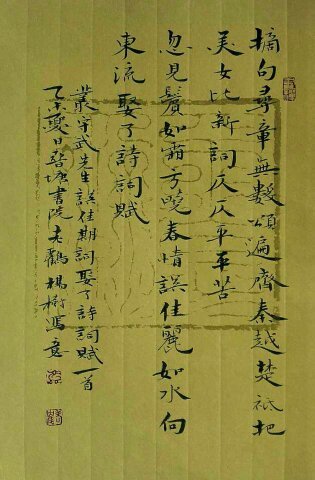 摘句尋章無數頌遍齊秦越楚祗把
美女比新詞仄仄平平苦
忽見鬢如霜方曉春情誤佳麗如水向
東流娶了詩詞賦
叢守武先生誤佳期詞娶了詩詞賦一首
乙未夏日磨塘書院老鸛楊樹馮意